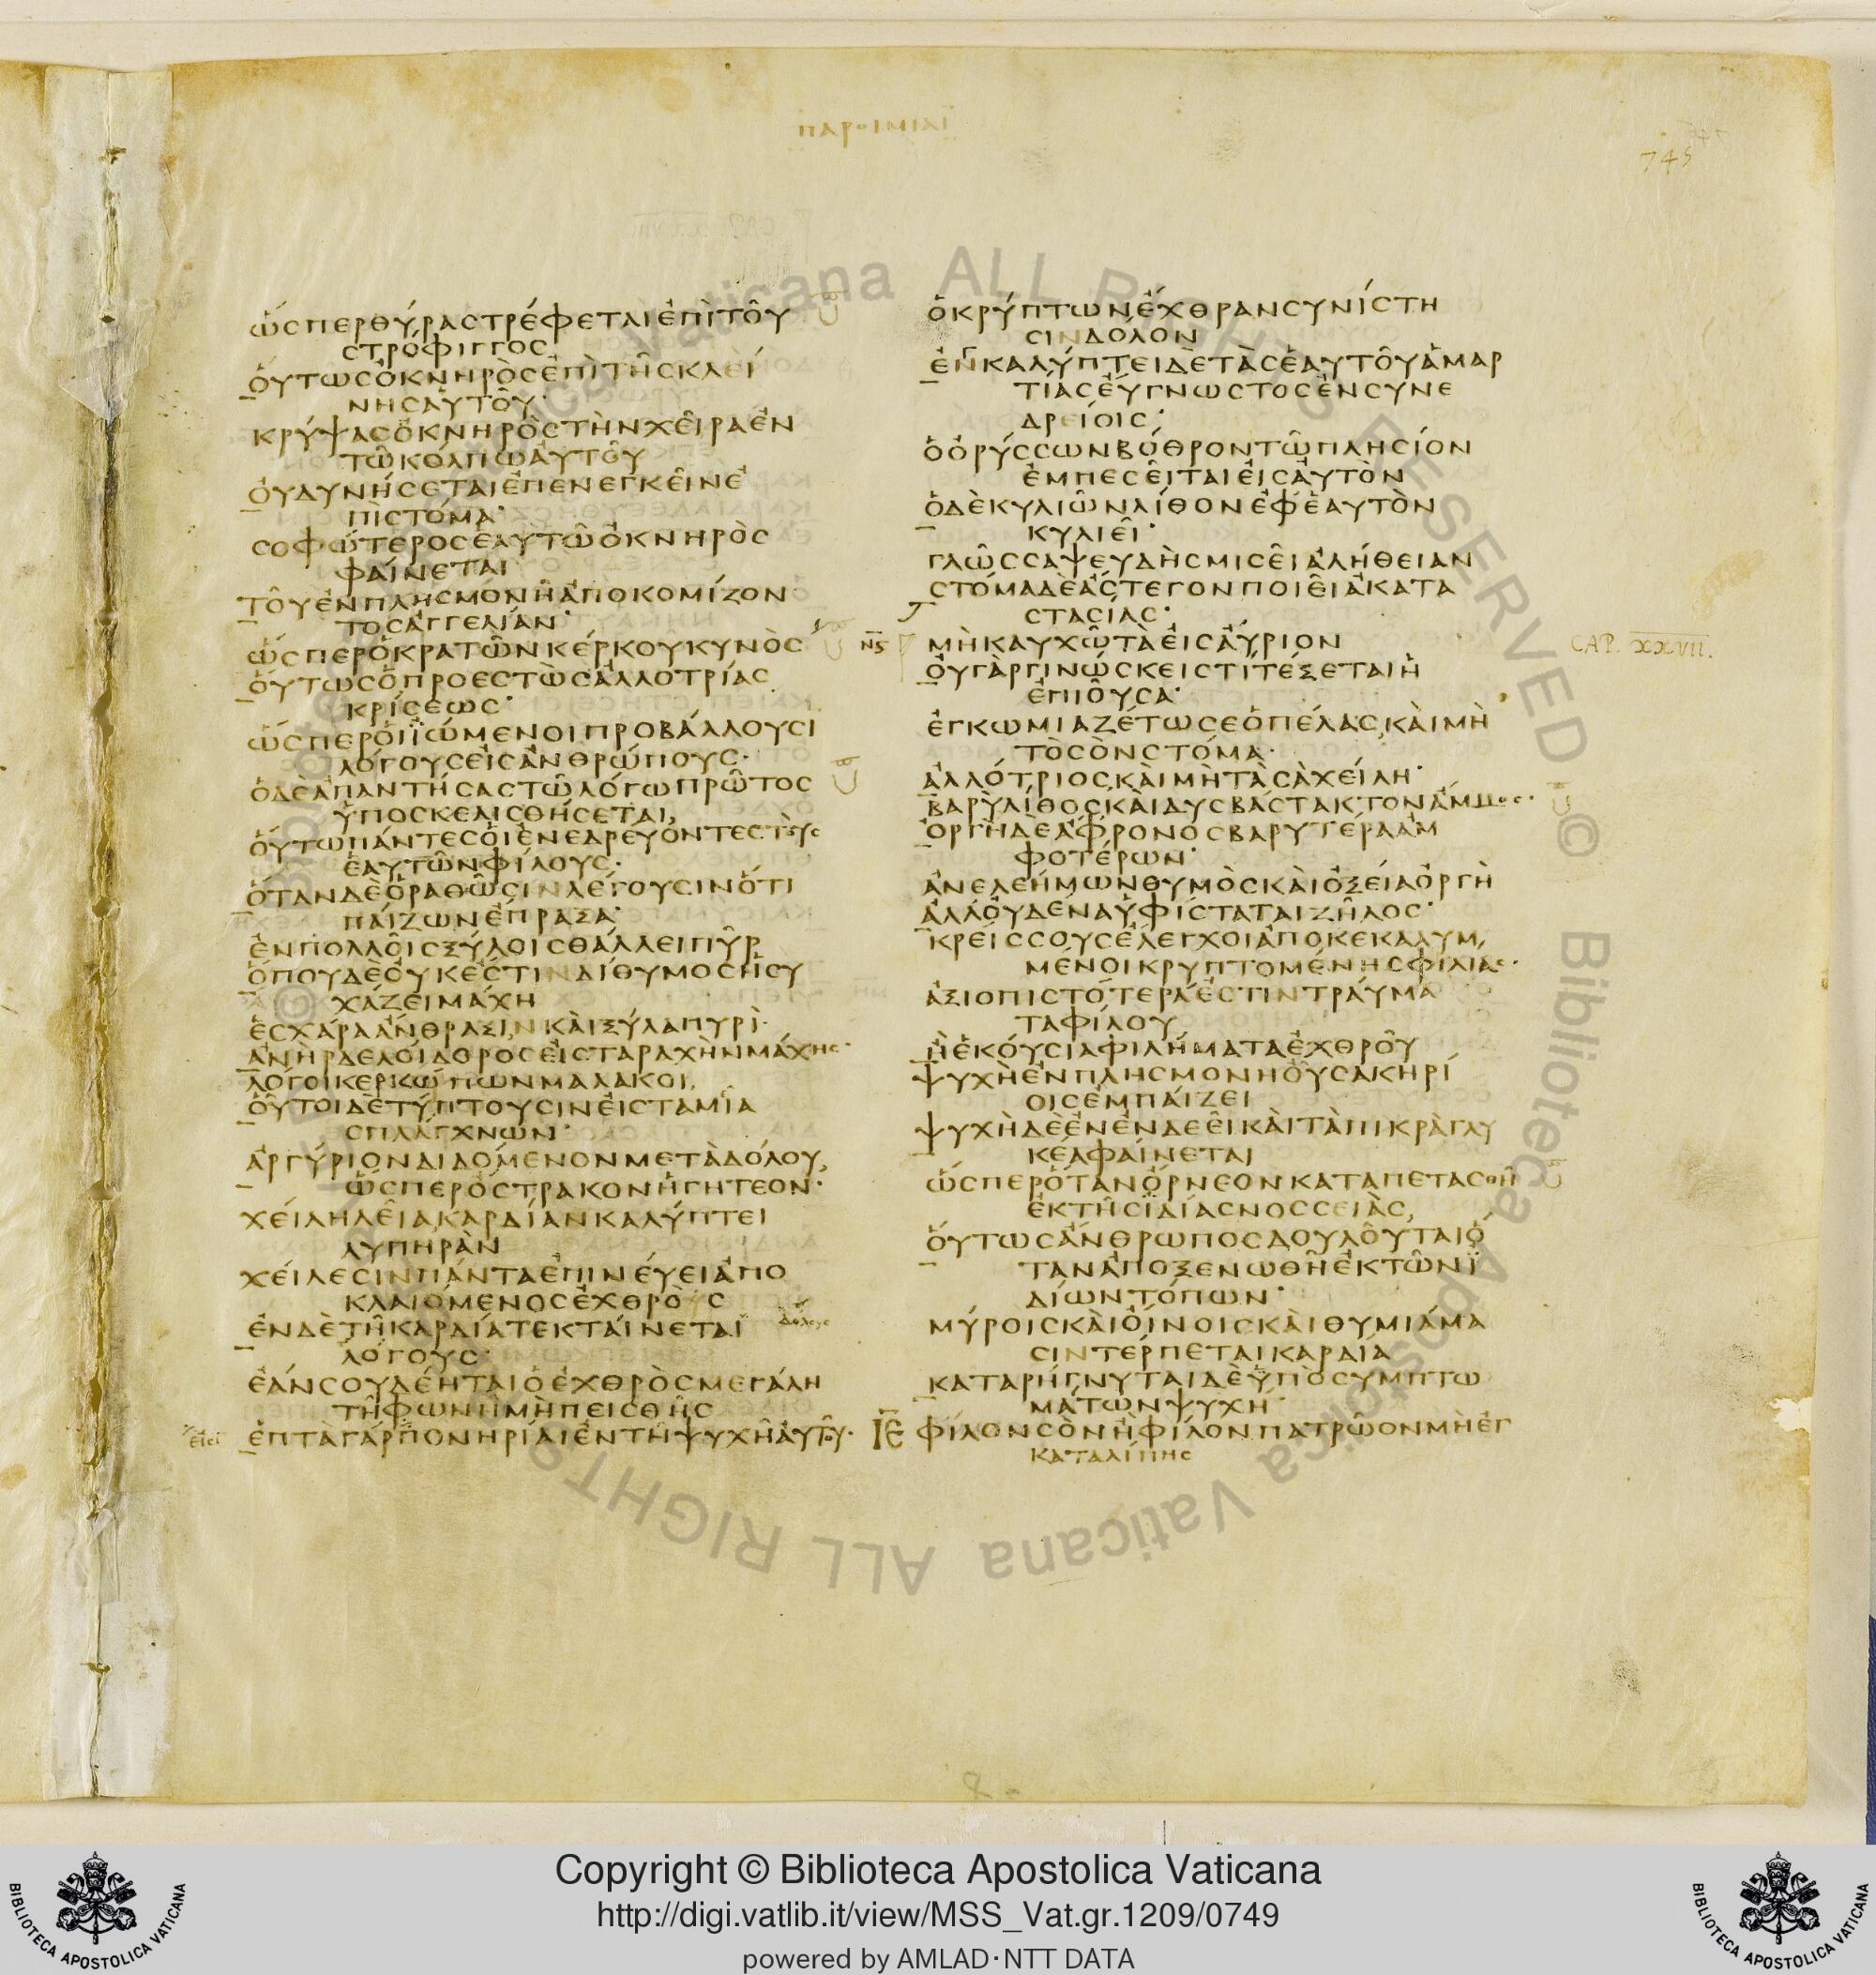 παροιμιαι
745
ὥσπερθύραστρέφεταιἐπὶτοῦ
στρόφιγγος
ὁύτωςὀκνηρὸςἐπὶτῆςκλεί
νηςαὐτοῦ·
κρύψαςὀκνηρὸςτὴνχεῖραἐν
τῶκόλπωαὐτοῦ
ὀυδυνήσεταιἐπενεγκεῖνἐ
πιστόμα·
σοφώτεροςἑαυτῶὀκνηρὸς
φαίνεται
τοῦἐνπλησμονῆἀποκομίζον
τοςἀγγελίαν·
ὥσπερὁκρατῶνκέρκουκυνὸς
ὁύτωςὁπροεστὼςἀλλοτρίας
κρίσεως·
ὥσπερὁιϊώμενοιπροβάλλουσι
λόγουςεἰςἀνθρώπους·
ὁδὲἀπαντήσαςτῶλόγωπρῶτος
ὑποσκελισθήσεται,
ὁύτωπάντεςὁιἐνεδρεύοντεςτοὺς
ἑαυτῶνφίλους·
ὅτανδὲὁραθῶσινλέγουσινὅτι
παίζωνἔπραξα·
ἐνπολλοῖςξύλοιςθάλλειπῦρ
ὅπουδὲὀυκἔστινδίθυμοςἡσυ
χάζειμάχη
ἐσχάραἄνθραξινκὰιξύλαπυρὶ·
ἀνὴρδελοίδοροςεἰςταραχὴνμάχης·
λόγοικερκώπωνμαλακοι,
ὁῦτοιδὲτύπτουσινἐισταμῖα
σπλάγχνων·
ἀργύριονδιδόμενονμετὰδόλου,
ὥσπερὄστρακονἡγητεον·
χείληλεῖακαρδίανκαλύπτει
λυπηρὰν
χείλεσινπάνταἐπινεύειἀπο
κλαιόμενοςἐχθρὸς
ἐνδὲτῆκαρδίατεκταίνεται
δόλους
λόγους·
ἐάνσουδέηταιὁἐχθρὸςμεγάλη
τῆφωνῆμὴπεισθῆς
εἰσι
ἑπτὰγάρπονηρίαιἐντῆψυχῆἀυτοῦ·
ὁκρύπτωνἔχθρανσυνίστη
σινδόλον
ἐνκαλύπτειδὲτὰςἑαυτοῦἁμαρ
τίαςἐύγνωστοςἐνσυνε
δρείοις·
ὁὀρύσσωνβόθροντῶπλησίον
ἐμπεσεῖταιἐιςἀυτὸν
ὁδὲκυλιῶνλίθονἐφἑαυτὸν
κυλιεῖ·
γλῶσσαψευδὴςμισεῖἀλήθειαν
στόμαδὲἄστεγονποιεῖἀκατα
στασίας·
νϛ
μὴκαυχῶτὰἐιςἀύριον
CAP. XXVII.
ὀυγὰργινώσκειςτίτέξεταιἡ
ἐπιοῦσα·
ἐγκωμιαζέτωσεὁπέλας,κὰιμὴ
τὸσὸνστόμα·
ἀλλότριοςκὰιμὴτὰσὰχείλη·
βαρὺλίθοςκὰιδυσβάστακτονἄμμος·
ὀργὴδὲἄφρονοςβαρυτέραἀμ
φοτέρων·
ἀνελεήμωνθυμὸςκὰιὀξείαὀργὴ
ἀλλὀυδέναὑφίσταταιζῆλος·
κρείσσουςἐλεγχοιἀποκεκαλυμ,
μένοικρυπτομένηςφιλίας·
ἀξιοπιστότεράἐστιντράυμα
ταφίλου
ἢἑκόυσιαφιλήματαἐχθροῦ
ψυχὴἐνπλησμονηοὖσακηρί
οιςἐμπαίζει
ψυχὴδὲἐνἐνδεεῖκὰιτὰπικρὰγλυ
κέαφαίνεται
ὥσπερὅτανὄρνεονκαταπετασθῆ
ἐκτῆςϊδίαςνοσσειὰς,
ὁύτωςἄνθρωποςδουλοῦταιὅ
τανἀποξενωθῆἐκτῶνϊ
δίωντόπων·
μύροιςκὰιὄινοιςκὰιθυμιάμα
σιντέρπεταικαρδία
καταρήγνυταιδὲὑπὸσυμπτω
μάτωνψυχή·
ΙΕ
φίλονσὸνἢφίλονπατρῶονμὴἐγ
καταλίπης
Copyright © Biblioteca Apostolica Vaticana
http://digi.vatlib.it/view/MSS_Vat.gr.1209/0749
powered by AMLAD·NTT DATA
BIBLIOTECA APOSTOLICA VATICANA
BIBLIOTECA APOSTOLICA VATICANA
© Biblioteca Apostolica Vaticana ALL RIGHTS RESERVED